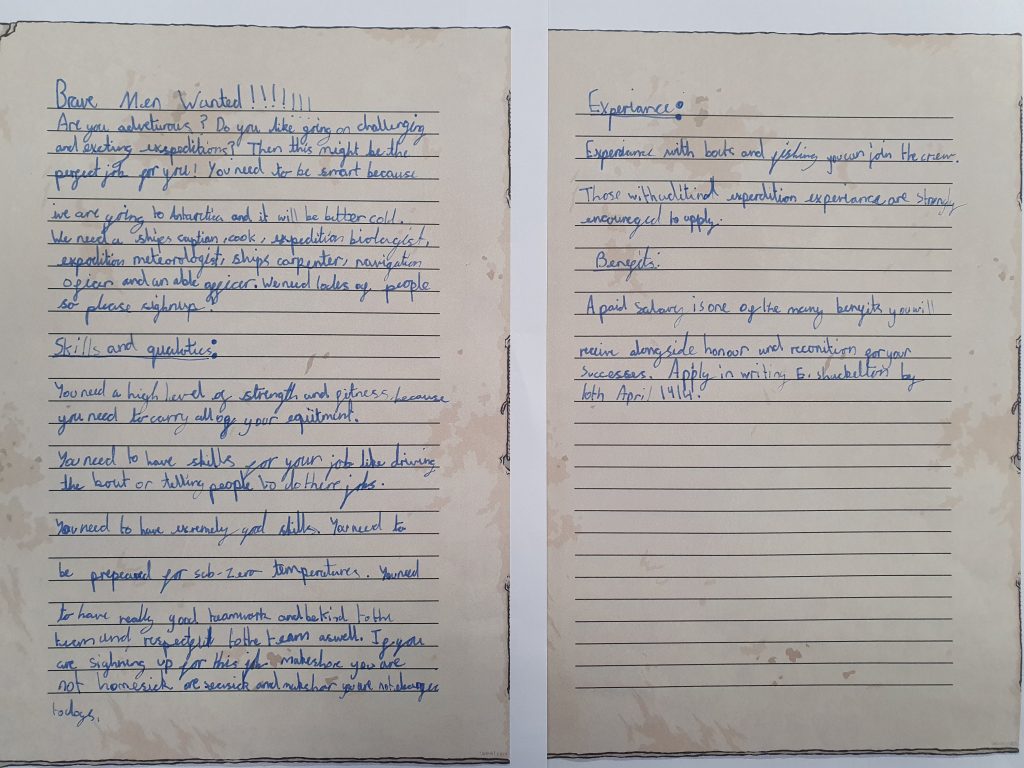 Brave Men Wanted!!!!!!!
Are you adveturous? Do you like going on challenging
and exeting expeditions? Then this might be the
perfect job for you! You need to be smart because
we are going to Antarctica and it will be bitter cold.
We need a ships caption, cook, expedition biologist,
expedition meteorologist, ships carpenter, navigation
oficer and an able officer. We need lodes of people
so please sighnup!
Skills and qualotics:
You need a high level of strength and fitness because
you need to carry all of your equitment.
You need to have skills for your job like driving
the boat or telling people to do there jobs.
You need to have exremely good skills. You need to
be prepeared for sub-zero temperatures. You need
to have really good teamwork and be kind to the
team and respectful to the team aswell. If you
are sighning up for this job makeshore you are
not homesick are seasick and make you are not
to dogs.
Experiance:
Experiance with boats and fishing you can join the crew.
Those with expedition experiance are strongly
encoureged to apply.
Benefits:
A paid salary is one of the many benyits you will
recive alongside honour and reconition for your
successes. Apply in writing E. shackelton by
16th April 1914.